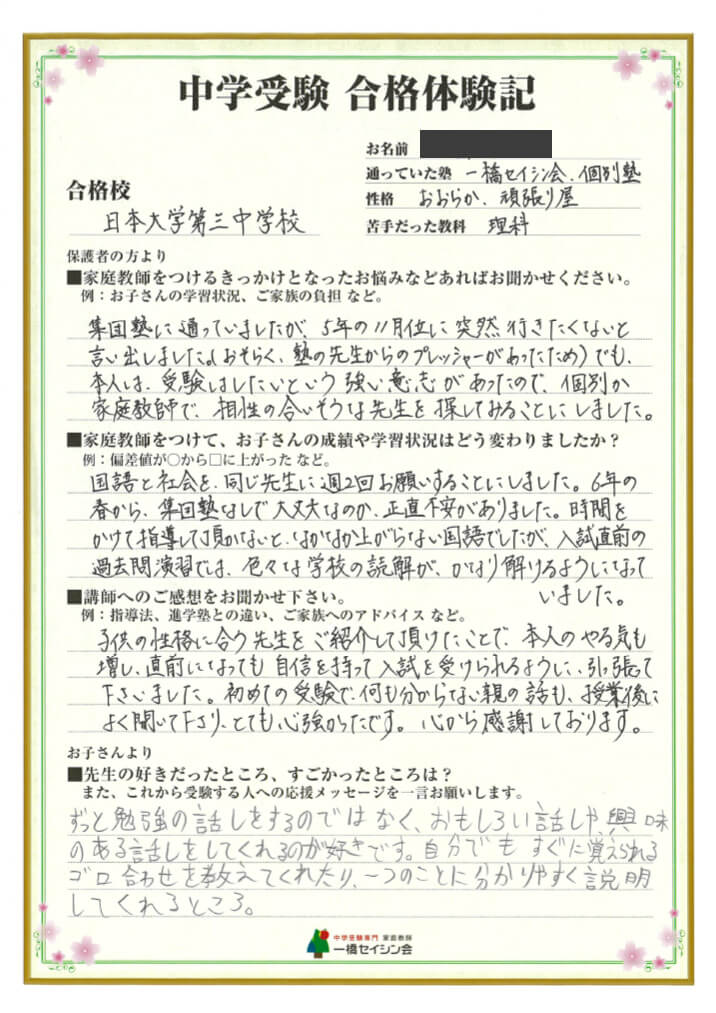 中学受験 合格体験記
お名前
通っていた塾 一橋セイシン会、個別塾
性格 おおらか、頑張り屋
苦手だった教科 理科
合格校
日本大学第三中学校
保護者の方より
■家庭教師をつけるきっかけとなったお悩みなどあればお聞かせください。
例：お子さんの学習状況、ご家族の負担 など。
集団塾に通っていましたが、5年の11月位に突然行きたくないと
言い出しました。(おそらく、塾の先生からのプレッシャーがあったため)でも、
本人は、受験はしたいという強い意志があったので、個別か
家庭教師で、相性の合いそうな先生を探してみることにしました。
■家庭教師をつけて、お子さんの成績や学習状況はどう変わりましたか？
例：偏差値が○から□に上がった など。
国語と社会を、同じ先生に週2回お願いすることにしました。6年の
春から、集団塾なしで大丈夫なのか、正直不安がありました。時間を
かけて指導して頂かないと、なかなか上がらない国語でしたが、入試直前の
過去問演習では、色々な学校の読解が、かなり解けるようになって
いました。
■講師へのご感想をお聞かせ下さい。
例：指導法、進学塾との違い、ご家族へのアドバイス など。
子供の性格に合う先生をご紹介して頂けたことで、本人のやる気も
増し、直前になっても自信を持って入試を受けられるように、引っ張って
下さいました。初めての受験で何も分からない親の話も、授業後に
よく聞いて下さり、とても心強かったです。心から感謝しております。
お子さんより
■先生の好きだったところ、すごかったところは？
また、これから受験する人への応援メッセージを一言お願いします。
ずっと勉強の話しをするのではなく、おもしろい話しや、興味
のある話しをしてくれるのが好きです。自分でもすぐに覚えられる
ゴロ合わせを教えてくれたり、一つのことに分かりやすく説明
してくれるところ。
中学受験専門 家庭教師
一橋セイシン会